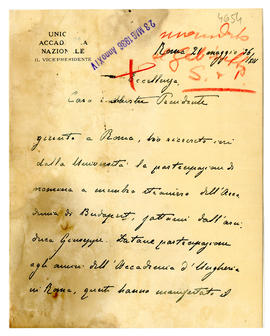 UNIC
ACCAD A
NAZION LE
IL VICEPRESIDENTE
23 MAG 1936 Anno XIV
4654
Roma 21 maggio 36/XIV
Eccellenza,
Caro Presidente
giunto a Roma, ho ricevuto ieri
dalla Università la partecipazione di
nomina a membro straniero dell'Acca
demia di Budapest, fattami dall'arci
duca Giuseppe. Datane partecipazione
agli amici dell'Accademia d'Ungheria
in Roma, questi hanno manifestato il